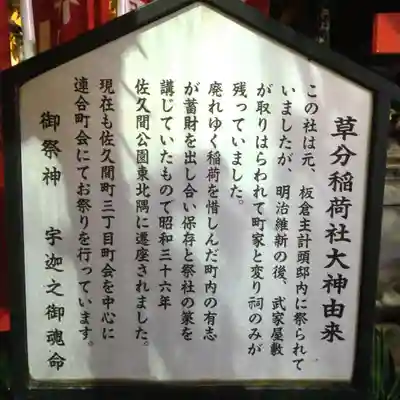 草分稲荷社大神由来
この社は元、板倉主計頭邸内に祭られて
いましたが、明治維新の後、武家屋敷
が取りはらわれて町家と変り祠のみが
残っていました。
廃れゆく稲荷を惜しんだ町内の有志
が蓄財を出し合い保存と祭社の策を
講じていたもので昭和三十六年
佐久間公園東北隅に遷座されました。
現在も佐久間町三丁目町会を中心に
連合町会にてお祭りを行っています。
御祭神 宇迦之御魂命